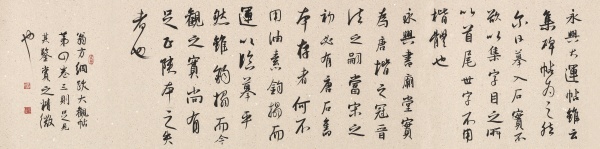 永興大運帖雖云
集碑帖為之然
尔日摹入石實不
欲以集字目之所
以首尾世字不用
楷體也
永興書廟堂實
為唐楷之冠晉
法之嗣當宋之
初必有唐石舊
本存者何不
用油素鈎搨而
運以臨摹乎
然雖鈎搨而今
觀之實尚有
足正陝本之失
者也
翁方綱跋大觀帖
第四卷三則足見
其鑒賞之精微
也